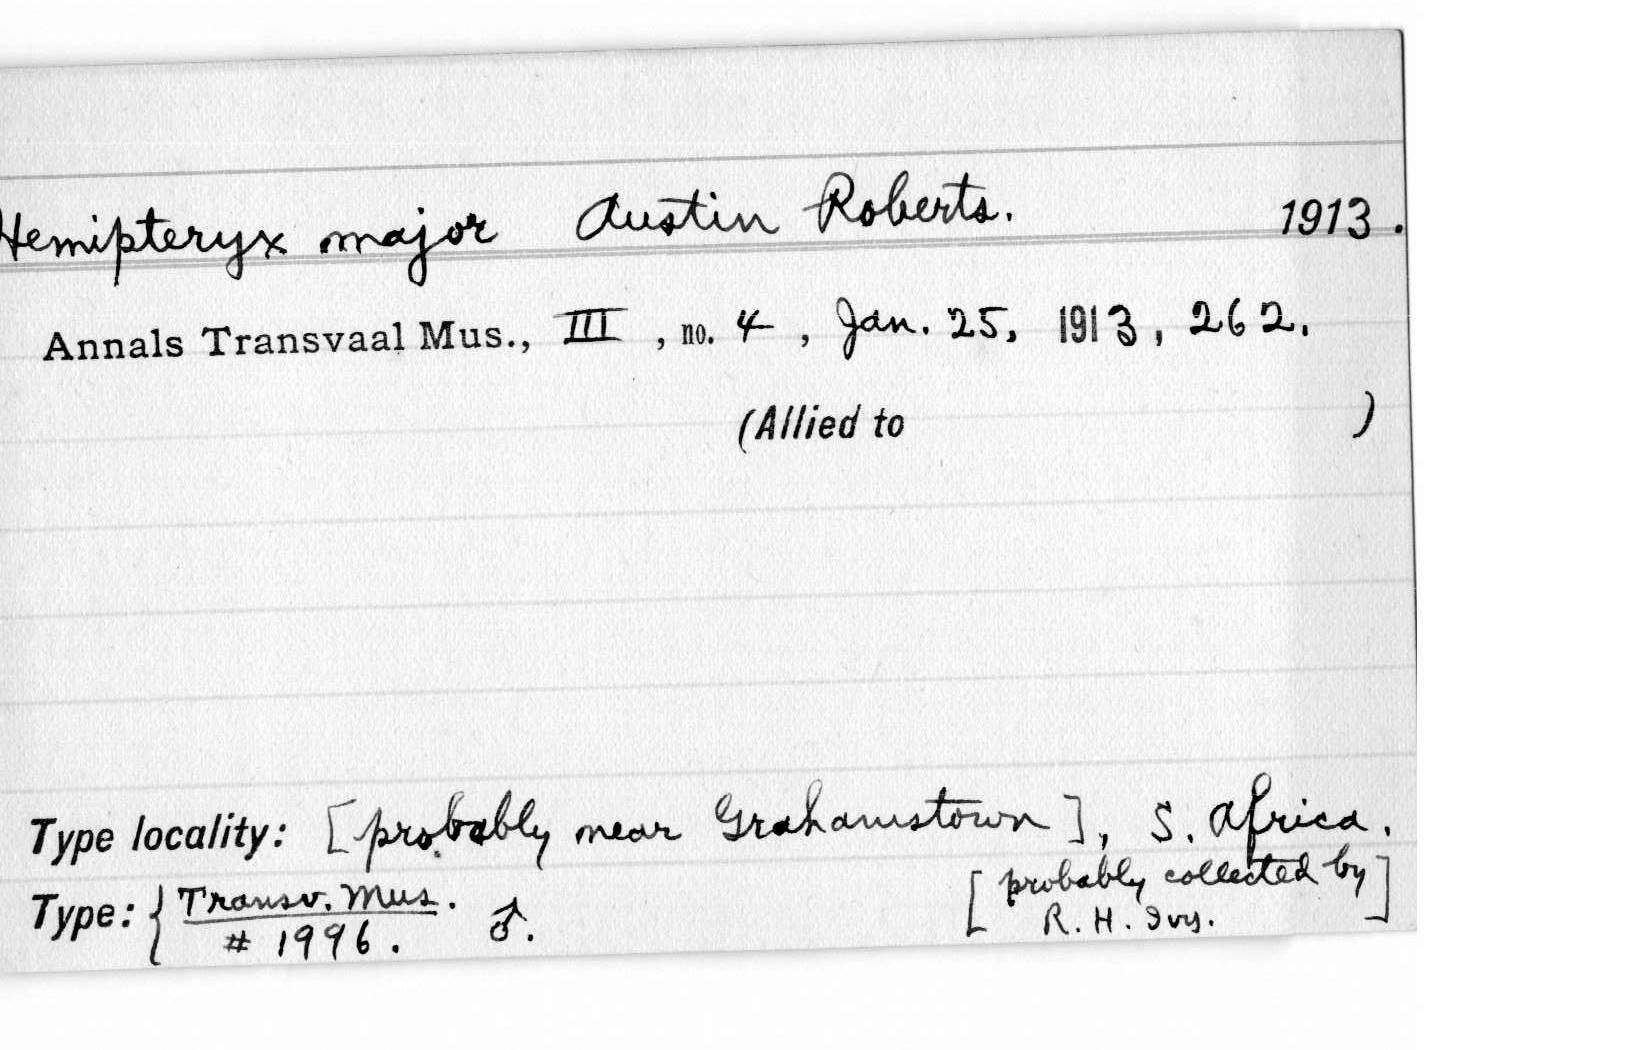 Hemipteryx major Austin Roberts. 1913.
Annals Transvaal Mus., III, no. 4, Jan. 25, 1913, 262.
(Allied to )
Type locality: [probably near Grahamstown], S. Africa.
Type: { Transv. Mus. ♂. [probably collected by
# 1996. R. H. Ivy.]